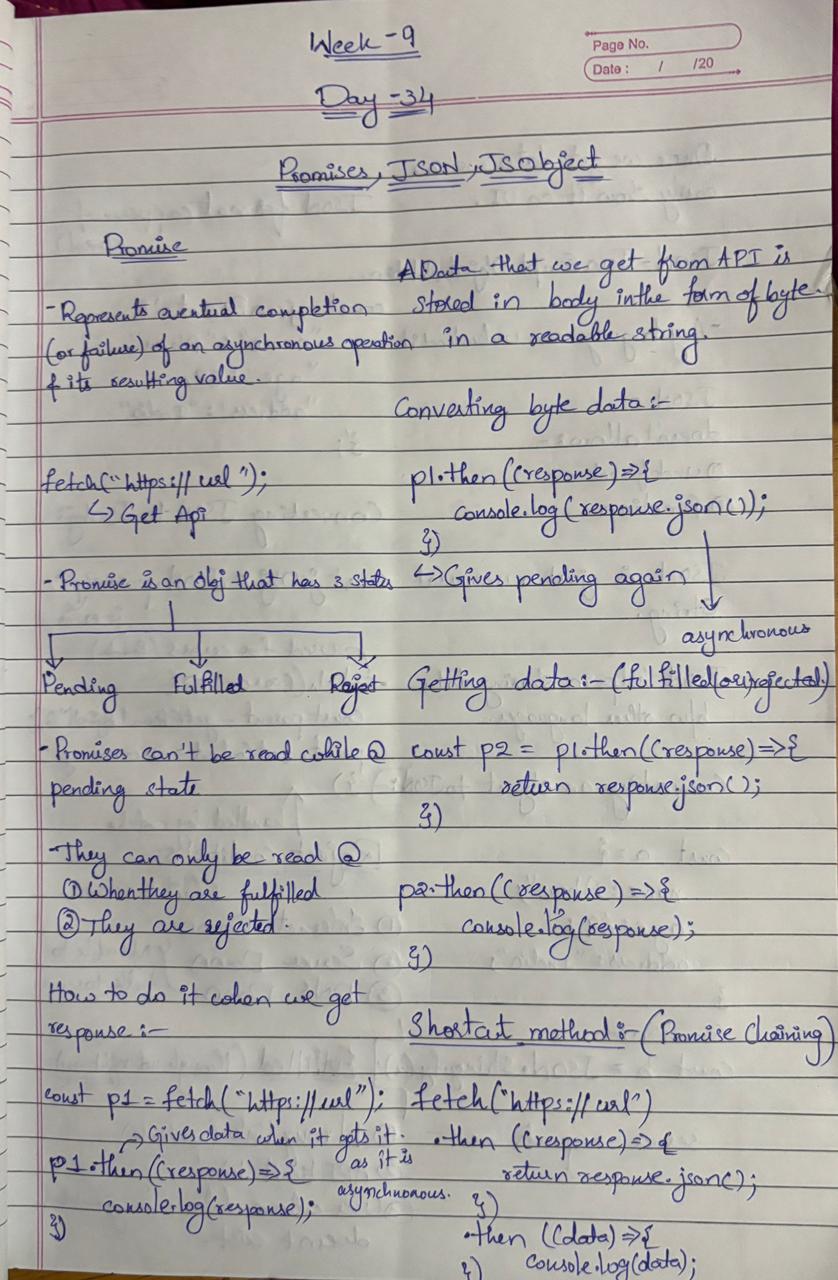 Week - 9
Page No.
Date : / /20
Day - 34
Promises, JSON, JSobject
Promise
- Represents eventual completion
(or failure) of an asynchronous operation
& its resulting value.
fetch("https://url");
↳ Get Api
- Promise is an obj that has 3 states
Pending Fulfilled Reject
- Promises can't be read while @
pending state
- They can only be read @
① When they are fulfilled
② They are rejected.
How to do it when we get
response :-
const p1 = fetch("https://url");
→ Gives data when it gets it.
as it is
asynchronous.
p1.then((response) => {
console.log(response);
})
A Data that we get from API is
stored in body in the form of byte.
in a readable string.
Converting byte data :-
p1.then((response) => {
console.log(response.json());
})
↳ Gives pending again
asynchronous
Getting data :- (fulfilled(or)rejected)
const p2 = p1.then((response) => {
return response.json();
})
p2.then((response) => {
console.log(response);
})
Shortcut method :- (Promise Chaining)
fetch("https://url")
.then ((response) => {
return response.json();
})
.then ((data) => {
console.log(data);
})